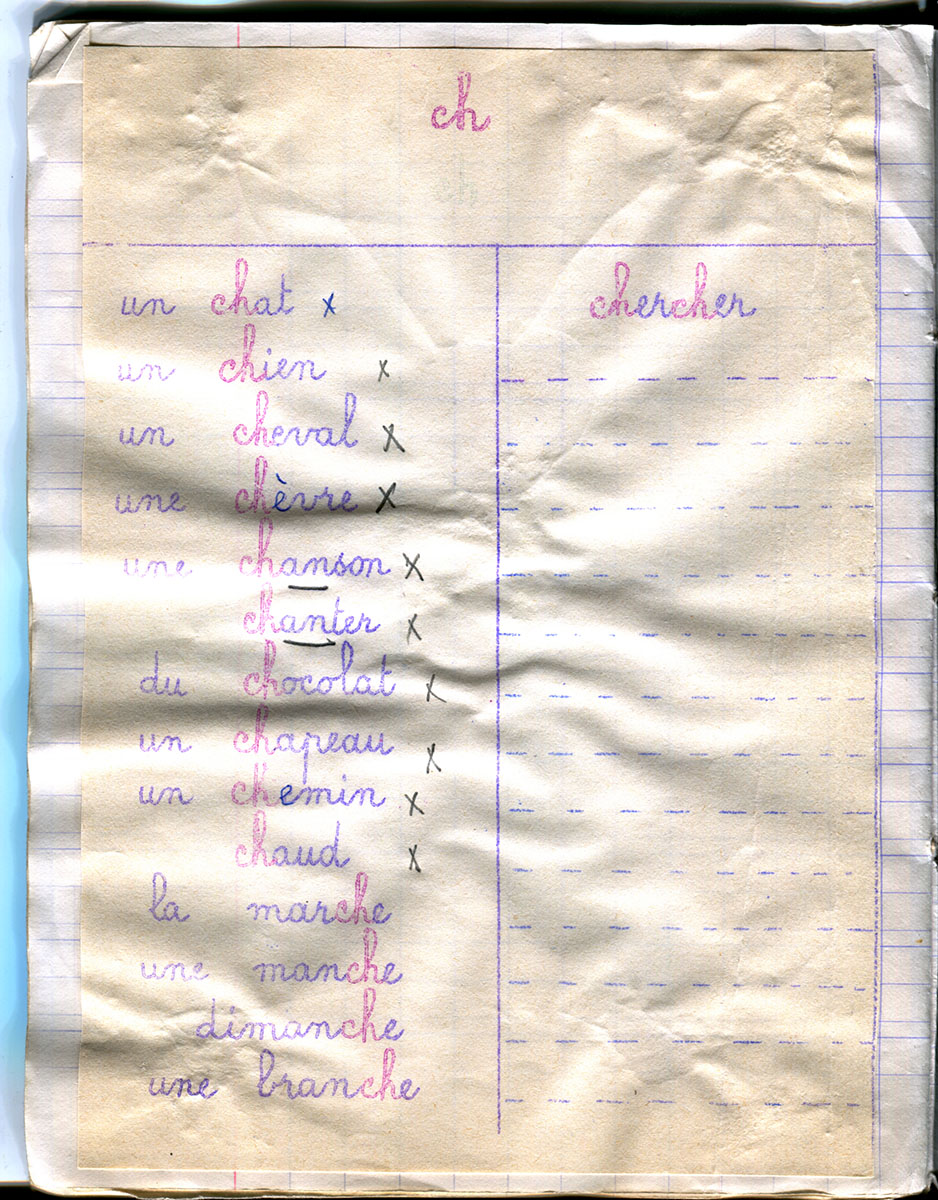 ch
un chat x
un chien x
un cheval x
une chèvre x
une chanson x
chanter x
du chocolat x
un chapeau x
un chemin x
chaud x
la marche
une manche
dimanche
une branche
chercher